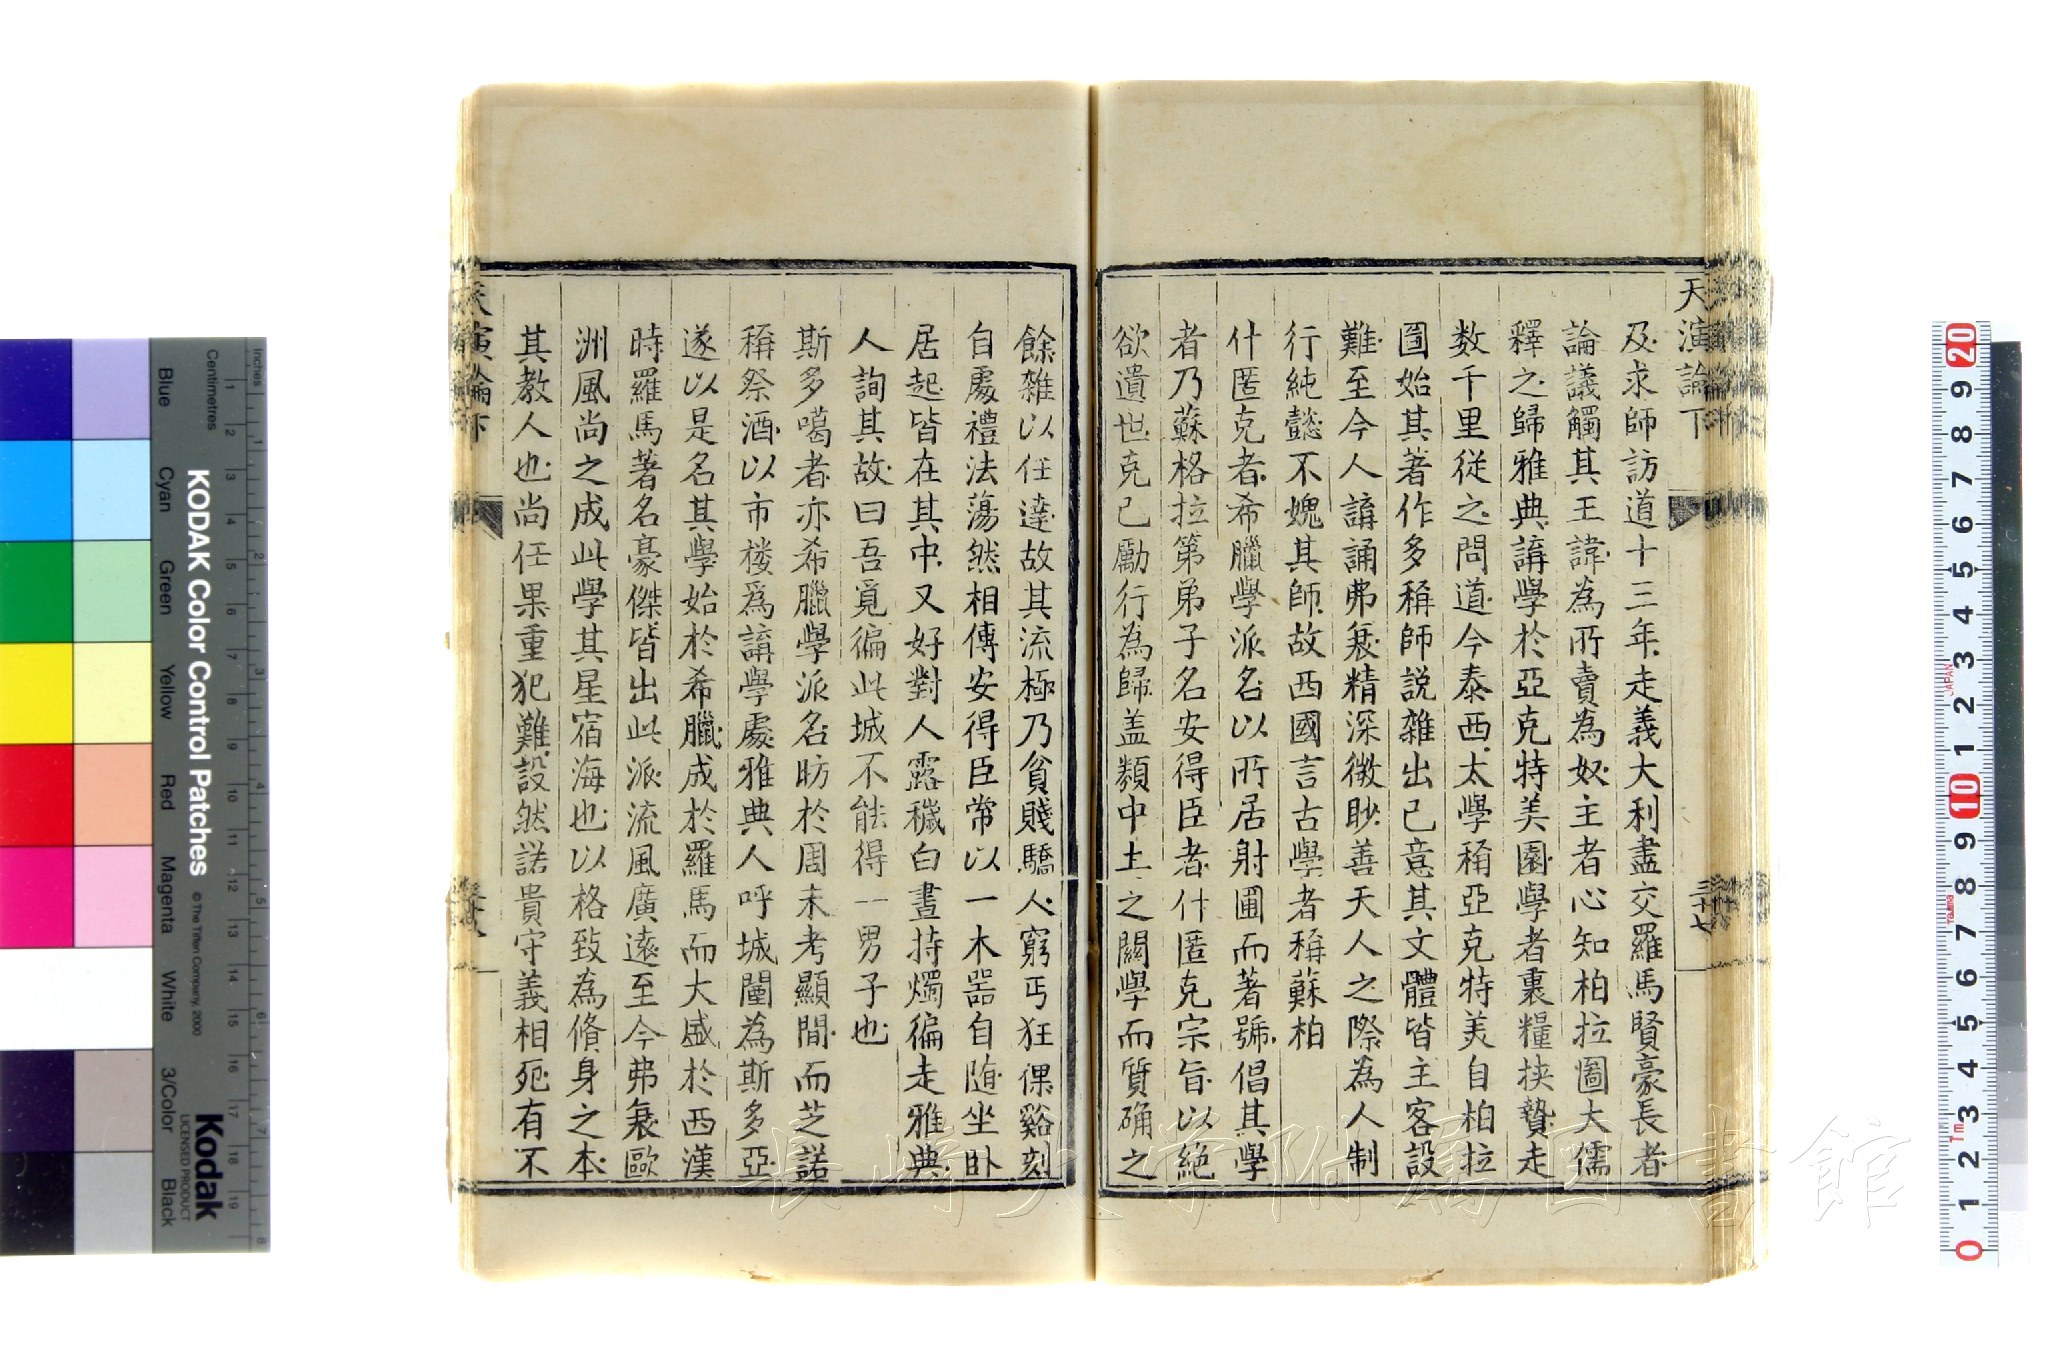 天演論下
三十七
及求師訪道十三年走義大利盡交羅馬賢豪長者
論議觸其王諱為所賣為奴主者心知柏拉圖大儒
釋之歸雅典講學於亞克特美園學者裹糧挾贄走
数千里從之問道今泰西太學稱亞克特美自柏拉
圖始其著作多稱師説雜出已意其文體皆主客設
難至今人講誦弗衰精深微眇善天人之際為人制
行純懿不媿其師故西國言古學者稱蘇柏
什匿克者希臘學派名以所居射圃而著號倡其學
者乃蘇格拉第弟子名安得臣者什匿克宗旨以絕
欲遺世克己勵行為歸盖類中土之關學而質确之
餘雜以任達故其流極乃貧賤驕人窮丐狂倮谿刻
自處禮法蕩然相傳安得臣常以一木器自随坐卧
居起皆在其中又好對人露穢白晝持燭徧走雅典
人詢其故曰吾覓徧此城不能得一男子也
斯多噶者亦希臘學派名昉於周末考顯間而芝諾
稱祭酒以市楼為講學處雅典人呼城闉為斯多亞
遂以是名其學始於希臘成於羅馬而大盛於西漢
時羅馬著名豪傑皆出此派流風廣遠至今弗衰歐
洲風尚之成此學其星宿海也以格致為脩身之本
其教人也尚任果重犯難設然諾貴守義相死有不
天演論下
KODAK Color Control Patches
© The Tiffen Company, 2000
Kodak
LICENSED PRODUCT
Inches
Centimetres
Blue
Cyan
Green
Yellow
Red
Magenta
White
3/Color
Black
1 2 3 4 5 6 7 8 9 10 11 12 13 14 15 16 17 18 19
1 2 3 4 5 6 7 8
20 9 8 7 6 5 4 3 2 1 10 9 8 7 6 5 4 3 2 1 0
JAPAN
Tajima
長崎大学附属図書館